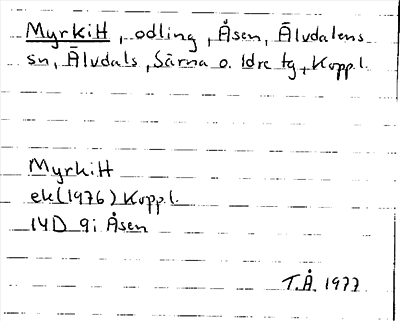 Myrkitt, odling, Åsen, Älvdalens
sn, Älvdals, Särna o. Idre tg, Kopp.l.
Myrkitt
ek (1976) Kopp.l.
14D 9i Åsen
T.Å. 1977